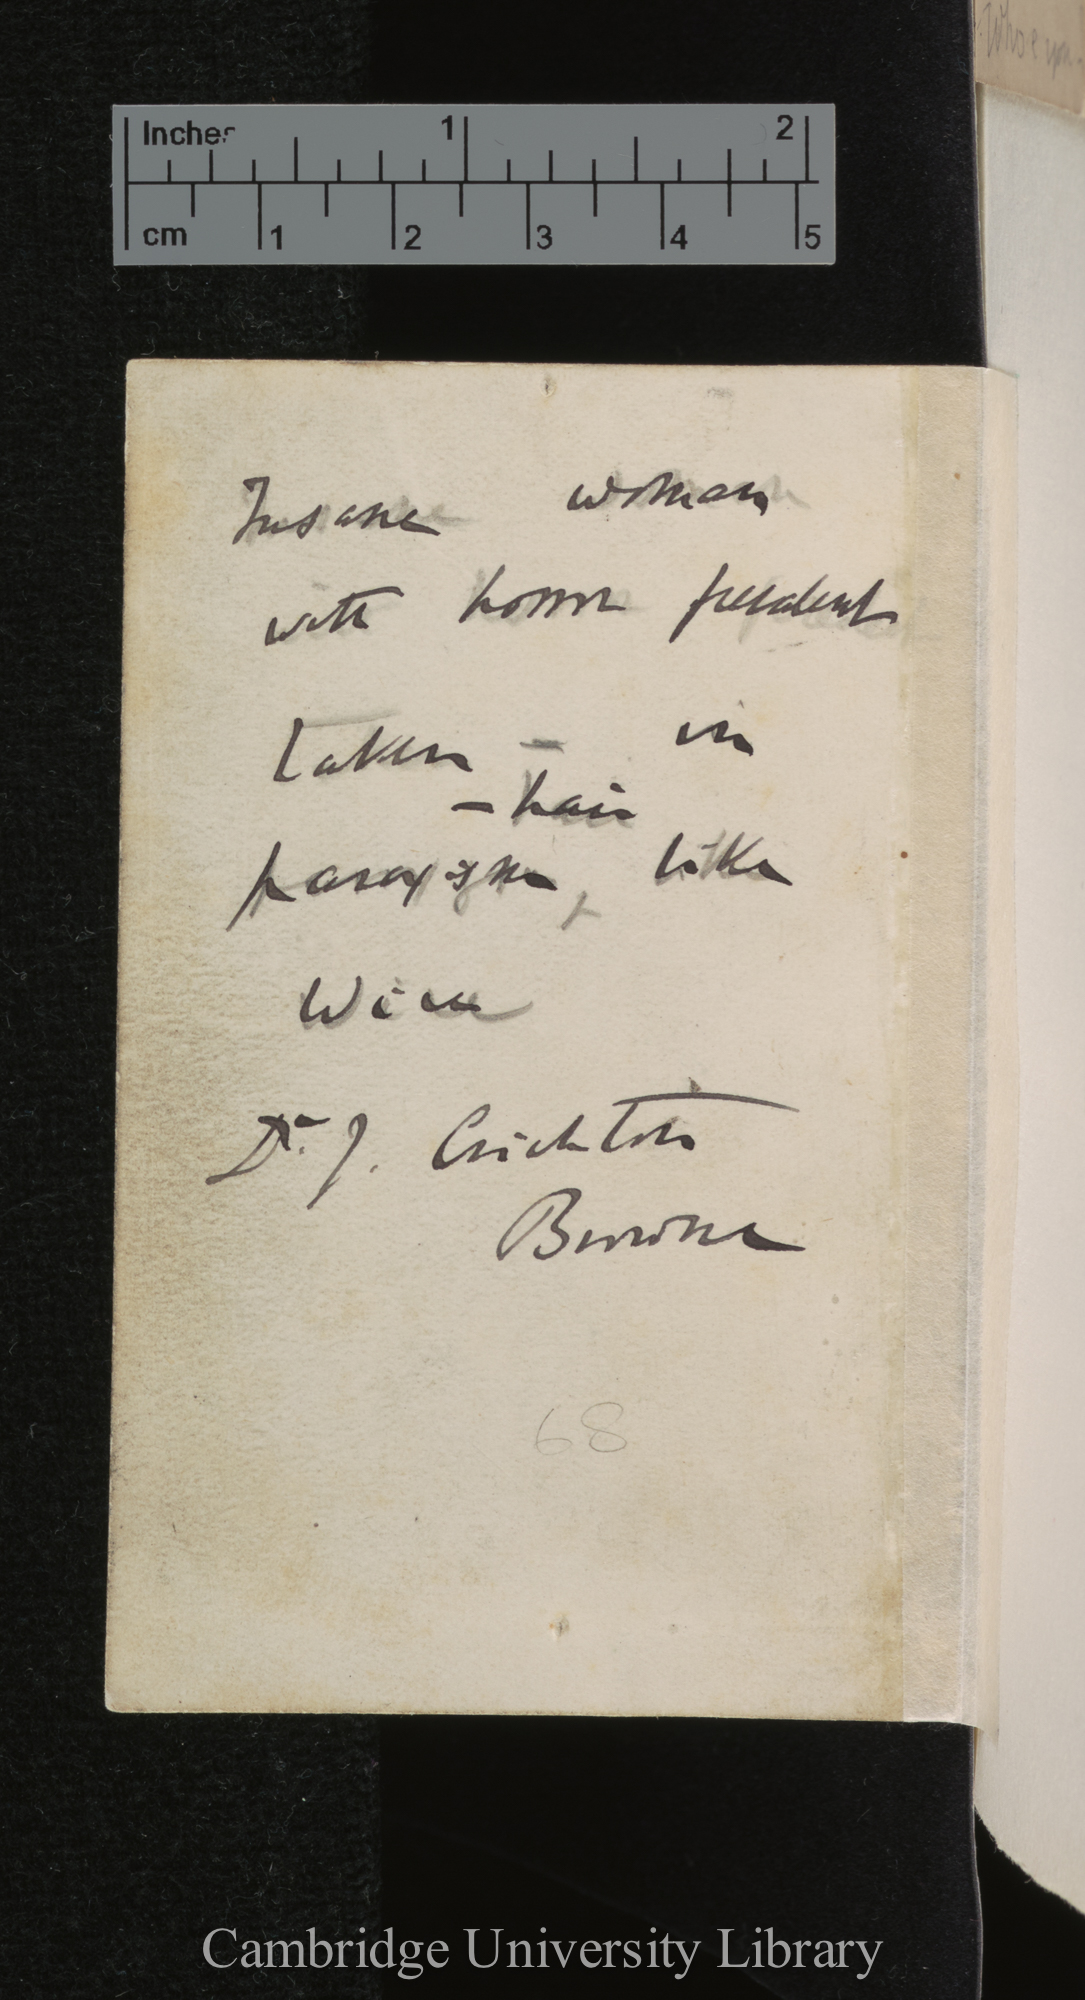 Whose you
Inches 1 2
cm 1 2 3 4 5
Insane woman
with horror prevalent
taken – in
– hair
paroxysm, like
Wire
Dr. J. Crichton
Browne
68
Cambridge University Library